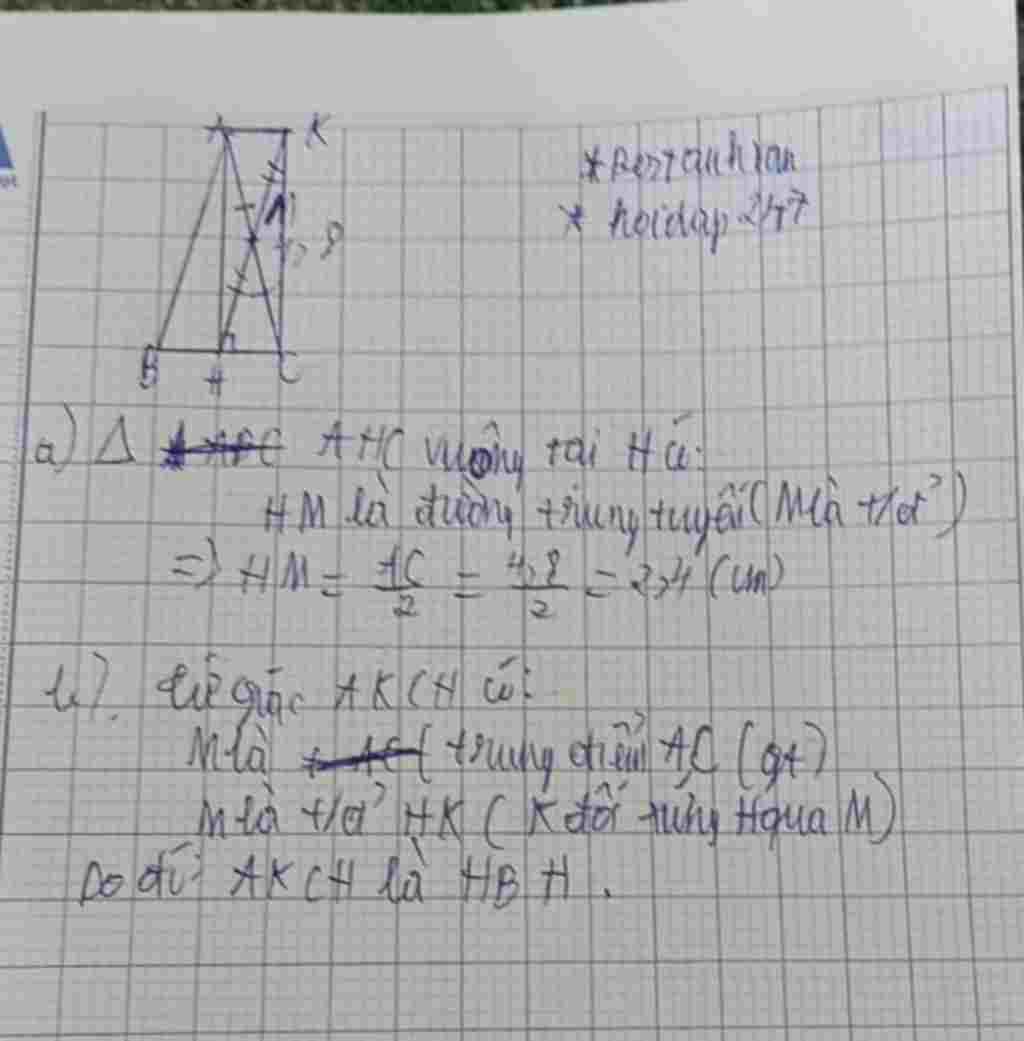 A K
M
4,8
B H C
* hoidap247
a) Δ AHC vuông tại H có:
HM là đường trung tuyến (M là t/đ)
=> HM = AC/2 = 4,8/2 = 2,4 (cm)
b). tứ giác AKCH có:
M là trung điểm AC (gt)
M là t/đ HK ( K đối xứng H qua M)
Do đó: AKCH là HBH.